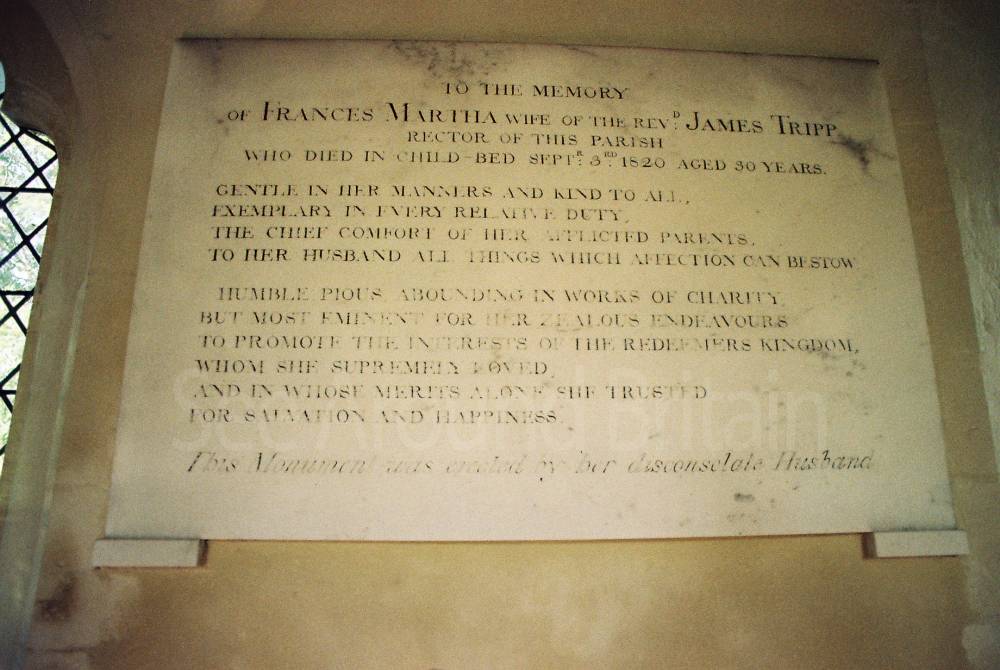 TO THE MEMORY
OF FRANCES MARTHA WIFE OF THE REVD. JAMES TRIPP
RECTOR OF THIS PARISH
WHO DIED IN CHILD-BED SEPTR. 3RD. 1820 AGED 30 YEARS.
GENTLE IN HER MANNERS AND KIND TO ALL,
EXEMPLARY IN EVERY RELATIVE DUTY,
THE CHIEF COMFORT OF HER AFFLICTED PARENTS,
TO HER HUSBAND ALL THINGS WHICH AFFECTION CAN BESTOW.
HUMBLE, PIOUS, ABOUNDING IN WORKS OF CHARITY,
BUT MOST EMINENT FOR HER ZEALOUS ENDEAVOURS
TO PROMOTE THE INTERESTS OF THE REDEEMERS KINGDOM,
WHOM SHE SUPREMELY LOVED,
AND IN WHOSE MERITS ALONE SHE TRUSTED
FOR SALVATION AND HAPPINESS.
See Around Britain
This Monument was erected by her disconsolate Husband